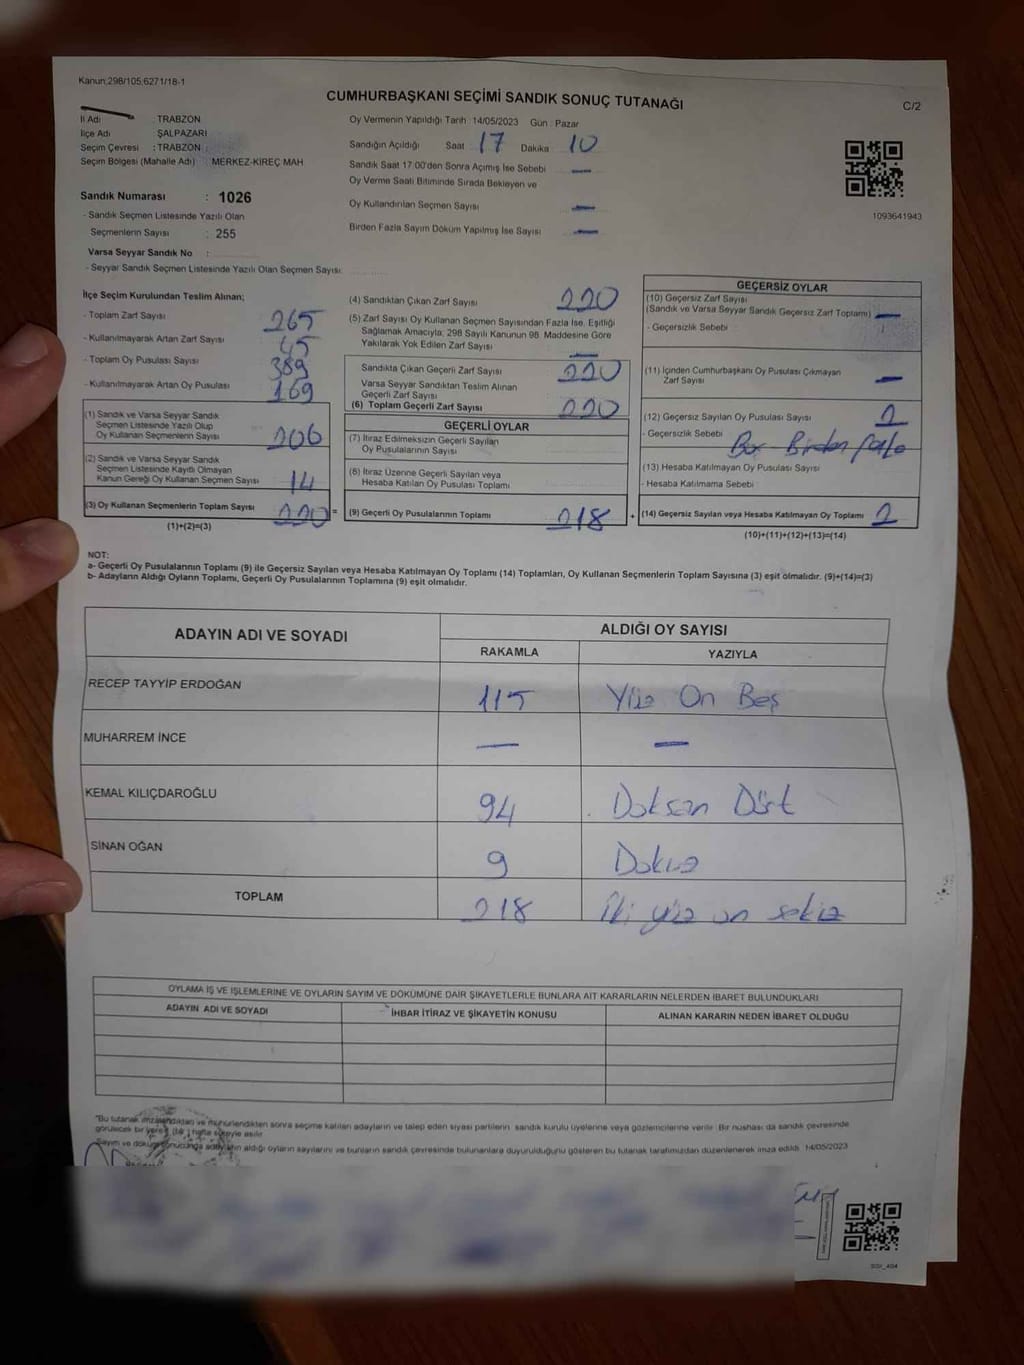 Kanun:298/105;6271/18-1
CUMHURBAŞKANI SEÇİMİ SANDIK SONUÇ TUTANAĞI
C/2
İl Adı : TRABZON
İlçe Adı : ŞALPAZARI
Seçim Çevresi : TRABZON
Seçim Bölgesi (Mahalle Adı) : MERKEZ-KİREÇ MAH
Sandık Numarası : 1026
- Sandık Seçmen Listesinde Yazılı Olan
Seçmenlerin Sayısı : 255
Varsa Seyyar Sandık No :
- Seyyar Sandık Seçmen Listesinde Yazılı Olan Seçmen Sayısı:
Oy Vermenin Yapıldığı Tarih : 14/05/2023 Gün : Pazar
Sandığın Açıldığı Saat 17 Dakika 10
Sandık Saat 17:00'den Sonra Açımış İse Sebebi —
Oy Verme Saati Bitiminde Sırada Bekleyen ve
Oy Kullandırılan Seçmen Sayısı —
Birden Fazla Sayım Döküm Yapılmış İse Sayısı —
1093641943
İlçe Seçim Kurulundan Teslim Alınan;
- Toplam Zarf Sayısı 265
- Kullanılmayarak Artan Zarf Sayısı 45
- Toplam Oy Pusulası Sayısı 389
- Kullanılmayarak Artan Oy Pusulası 169
(1) Sandık ve Varsa Seyyar Sandık
Seçmen Listesinde Yazılı Olup
Oy Kullanan Seçmenlerin Sayısı 206
(2) Sandık ve Varsa Seyyar Sandık
Seçmen Listesinde Kayıtlı Olmayan
Kanun Gereği Oy Kullanan Seçmen Sayısı 14
(3) Oy Kullanan Seçmenlerin Toplam Sayısı 220 =
(1)+(2)=(3)
(4) Sandıktan Çıkan Zarf Sayısı 220
(5) Zarf Sayısı Oy Kullanan Seçmen Sayısından Fazla İse, Eşitliği
Sağlamak Amacıyla, 298 Sayılı Kanunun 98. Maddesine Göre
Yakılarak Yok Edilen Zarf Sayısı —
Sandıkta Çıkan Geçerli Zarf Sayısı 220
Varsa Seyyar Sandıktan Teslim Alınan
Geçerli Zarf Sayısı
(6) Toplam Geçerli Zarf Sayısı 220
GEÇERLİ OYLAR
(7) İtiraz Edilmeksizin Geçerli Sayılan
Oy Pusulalarının Sayısı
(8) İtiraz Üzerine Geçerli Sayılan veya
Hesaba Katılan Oy Pusulası Toplamı
(9) Geçerli Oy Pusulalarının Toplamı 218 +
GEÇERSİZ OYLAR
(10) Geçersiz Zarf Sayısı
(Sandık ve Varsa Seyyar Sandık Geçersiz Zarf Toplamı) —
- Geçersizlik Sebebi
(11) İçinden Cumhurbaşkanı Oy Pusulası Çıkmayan
Zarf Sayısı —
(12) Geçersiz Sayılan Oy Pusulası Sayısı 2
- Geçersizlik Sebebi Birden fazla
(13) Hesaba Katılmayan Oy Pusulası Sayısı
- Hesaba Katılmama Sebebi
(14) Geçersiz Sayılan veya Hesaba Katılmayan Oy Toplamı 2
(10)+(11)+(12)+(13)=(14)
NOT:
a- Geçerli Oy Pusulalarının Toplamı (9) ile Geçersiz Sayılan veya Hesaba Katılmayan Oy Toplamı (14) Toplamları, Oy Kullanan Seçmenlerin Toplam Sayısına (3) eşit olmalıdır. (9)+(14)=(3)
b- Adayların Aldığı Oyların Toplamı, Geçerli Oy Pusulalarının Toplamına (9) eşit olmalıdır.
ADAYIN ADI VE SOYADI ALDIĞI OY SAYISI
RAKAMLA YAZIYLA
RECEP TAYYİP ERDOĞAN 115 Yüz On Beş
MUHARREM İNCE — —
KEMAL KILIÇDAROĞLU 94 Doksan Dört
SİNAN OĞAN 9 Dokuz
TOPLAM 218 İki yüz on sekiz
OYLAMA İŞ VE İŞLEMLERİNE VE OYLARIN SAYIM VE DÖKÜMÜNE DAİR ŞİKAYETLERLE BUNLARA AİT KARARLARIN NELERDEN İBARET BULUNDUKLARI
ADAYIN ADI VE SOYADI İHBAR İTİRAZ VE ŞİKAYETİN KONUSU ALINAN KARARIN NEDEN İBARET OLDUĞU
"Bu tutanak imzalandıktan ve mühürlendikten sonra seçime katılan adayların ve talep eden siyasi partilerin sandık kurulu üyelerine veya gözlemcilerine verilir. Bir nushası da sandık çevresinde
görülecek bir yere hafta süreyle asılır.
Sayım ve döküm sonucunda adayların aldığı oyların sayılarını ve bunların sandık çevresinde bulunanlara duyurulduğunu gösteren bu tutanak tarafımızdan düzenlenerek imza edildi. 14/05/2023